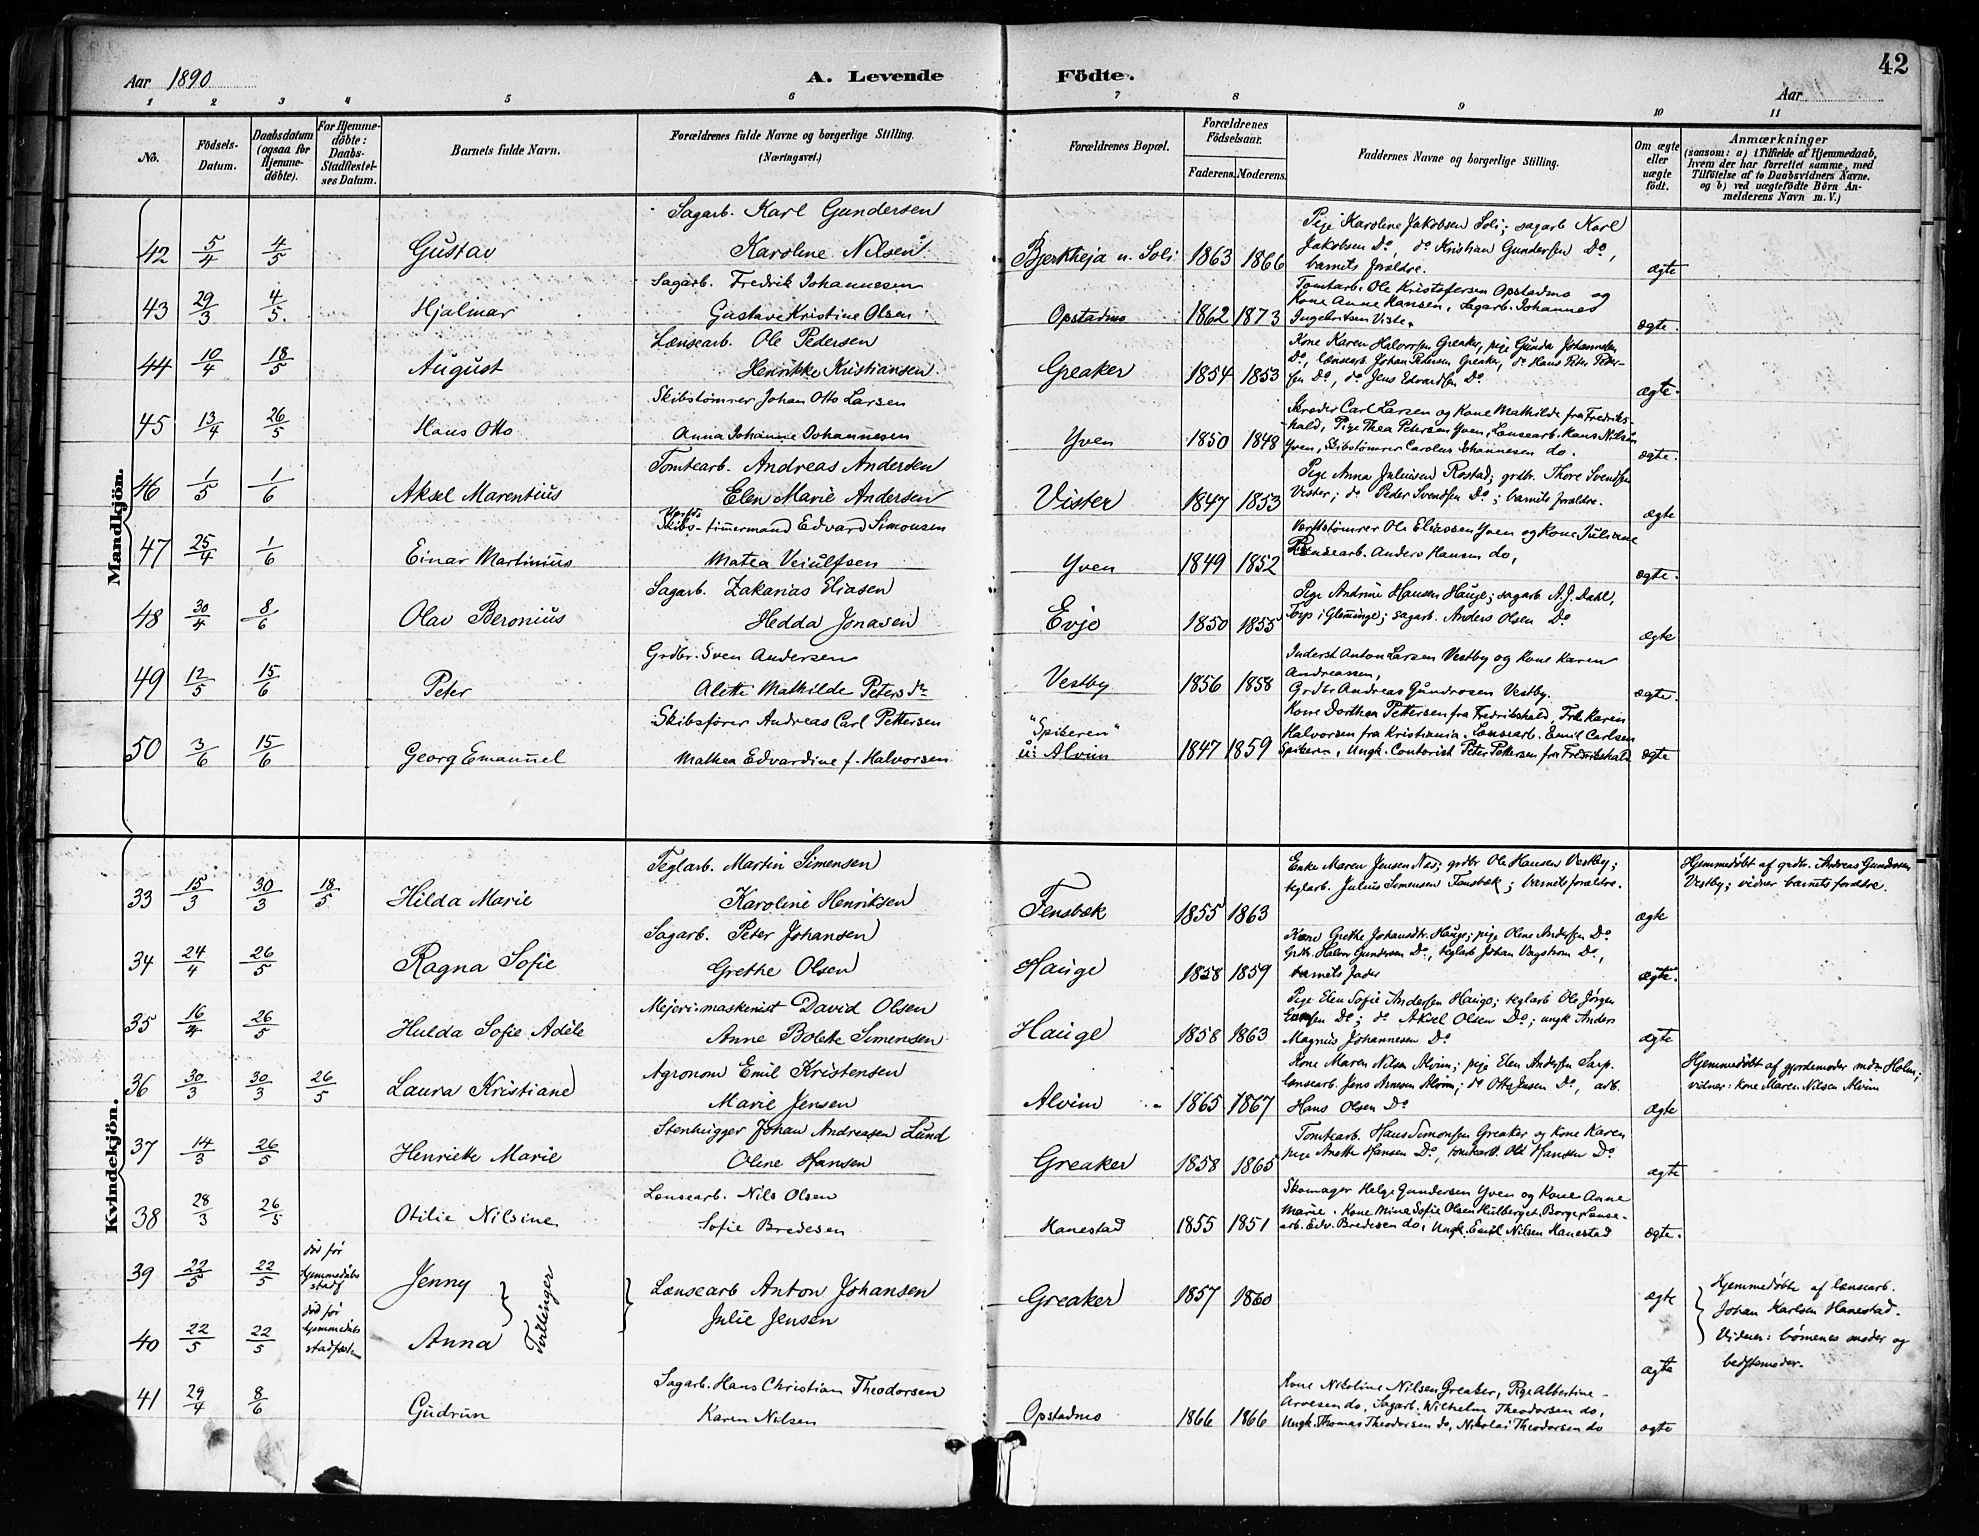 Aar 1890
A. Levende Födte.
42
Aar
1 2 3 4 5 6 7 8 9 10 11
No.
Födsels-Datum.
Daabsdatum (ogsaa for Hjemme-döbte).
For Hjemme-döbte: Daabs-Stadfestel-ses Datum.
Barnets fulde Navn.
Forældrenes fulde Navne og borgerlige Stilling. (Næringsvei.)
Forældrenes Bopæl.
Forældrenes Födselsaar.
Faderens. Moderens.
Faddernes Navne og borgerlige Stilling.
Om ægte eller uægte födt.
Anmærkninger
(saasom: a) i Tilfælde af Hjemmedaab, hvem der har forrettet samme, med Tilföielse af to Daabsvidners Navne, og b) ved uægtefödte Börn An-melderens Navn m. V.)
Mandkjön.
Sagarb. Karl Gundersen
42 5/4 4/5 Gustav Karoline Nilsen Bjerkheja u. Soli 1863 1866
Pige Karoline Jakobsen Soli; sagarb Karl
Jakobsen Do, do Kristian Gundersen Do,
barnets forældre. ægte
Sagarb. Fredrik Johannesen
43 29/3 4/5 Hjalmar Gustave Kristine Olsen Opstadmo 1862 1873
Tomtarb. Ole Kristofersen Opstadmo og
Kone Anne Hansen, Sagarb. Johannes
Ingebritsen Viste. ægte.
Lænsearb. Ole Pedersen
44 10/4 18/5 August Henrikke Kristiansen Greaker 1854 1853
Kone Karen Halvorsen Greaker, pige Gunda Johannesen
Do, lænsearb. Johan Petersen Greaker, do Hans Peter Peder-
sen Do, do Jens Edvardsen Do ægte.
Skibstømrer Johan Otto Larsen
45 13/4 26/5 Hans Otto Anna Johanne Johannesen Yven 1850 1848
Skræder Carl Larsen og Kone Mathilde fra Fredriks-
hald, Pige Thea Petersen Yven, Lænsearb. Hans Nilsen
Yven, Skibstømrer Carolus Johannesen do. ægte.
Tomtearb. Andreas Andersen
46 1/5 1/6 Aksel Marentius Elen Marie Andersen Vister 1847 1853
Pige Anna Juliusen Rostad; grdbr. Thore Svendsen
Vister; do Peder Svendsen Do; barnets forældre. ægte
Skibs-timmermand Edvard Simonsen
47 25/4 1/6 Einar Martinius Matea Veiulfsen Yven 1849 1852
Verftstømrer Ole Eliassen Yven og Kone Juliane
Lænsearb. Anders Hansen do, ægte.
Sagarb. Zakarias Eliasen
48 30/4 8/6 Olav Beronius Hedda Jonasen Evjo 1850 1855
Pige Andrine Hansen Hauge; sagarb A. J. Dahl,
Torp i Glemminge; sagarb. Anders Olsen Do ægte
Grdbr. Sven Andersen
49 12/5 15/6 Peter Alette Mathilde Petersdr Vestby 1856 1858
Inderst Anton Larsen Vestby og Kone Karen
Andreassen,
Grdbr Andreas Gundrosen Vestby. ægte.
Skibsfører Andreas Carl Pettersen
50 3/6 15/6 Georg Emanuel Mathea Edvardine f. Halvorsen "Spikeren" u: Alvim 1847 1859
Kone Dorthea Pettersen fra Fredrikshald, Frk Karen
Halvorsen fra Kristiania. Lænsearb. Emil Carlsen
Spikeren, Ungk. Contorist Peter Pettersen fra Fredrikshald ægte
Kvindekjön.
Teglarb. Martin Simensen
33 15/3 30/3 18/5 Hilda Marie Karoline Henriksen Fensbæk 1855 1863
Enke Maren Jensen Næs; grdbr Ole Hansen Vestby;
teglarb. Julius Simensen Fensbæk; barnets forældre. ægte
Hjemmedøbt af grdbr. Andreas Gundrosen
Vestby; vidner barnets forældre.
Sagarb. Peter Johansen
34 24/4 26/5 Ragna Sofie Grethe Olsen Hauge 1858 1859
Kone Grethe Johansdtr. Hauge; pige Oline Andersen Do
Grdbr. Halvor Gundersen Do, teglarb Johan Vagstrom Do,
barnets fader ægte.
Mejeri-maskinist David Olsen
35 16/4 26/5 Hulda Sofie Adéle Anne Bolette Simensen Hauge 1858 1863
Pige Elen Sofie Andersen Hauge; teglarb Ole Jørgen
Do; do Aksel Olsen Do; ungk Anders
Magnus Johannesen Do ægte
Agronom Emil Kristensen
36 30/3 30/3 26/5 Laura Kristiane Marie Jensen Alvim 1865 1867
Kone Maren Nilsen Alvim; pige Elen Andersen Sarp.
lænsearb. Jens Arnesen Alvim; do Otto Jensen Do, arb.
Hans Olsen Do ægte
Hjemmedøbt af gjordemoder mdm Holm;
vidner: kone Maren Nilsen Alvim
Stenhugger Johan Andreasen Lund
37 14/3 26/5 Henriette Marie Oline Hansen Greaker 1858 1865
Tomtearb. Hans Simonsen Greaker og Kone Karen
pige Anette Hansen Do, tomtearb. Ole Hansen Do ægte
Lænsearb. Nils Olsen
38 28/3 26/5 Otilie Nilsine Sofie Bredesen Hanestad 1855 1851
Skomager Helge Gundersen Yven og Kone Anne
Marie. Kone Mina Sofie Olsen Hulberget, Borge, Lænse-
arb. Edv. Bredesen do, Ungk. Emil Nilsen Hanestad ægte.
39 22/5 22/5 død før hjemmedåbs stadf Jenny
Tvillinger
Lænsearb Anton Johansen
Julie Jensen
Greaker 1857 1860 ægte
40 22/5 22/5 død før hjemmedåbs stadfæst Anna ægte
Hjemmedøbte af lænsearb.
Johan Karlsen Hanestad.
Vidner: børnenes moder og
bedstemoder.
Sagarb. Hans Christian Theodorsen
41 29/4 8/6 Gudrun Karen Nilsen Opstadmo 1866 1866
Kone Nikoline Nilsen Greaker, Pige Albertine
Arvesen do, Sagarb. Wilhelm Theodorsen do,
Ungk. Thomas Theodorsen do, Nikolai Theodorsen do ægte